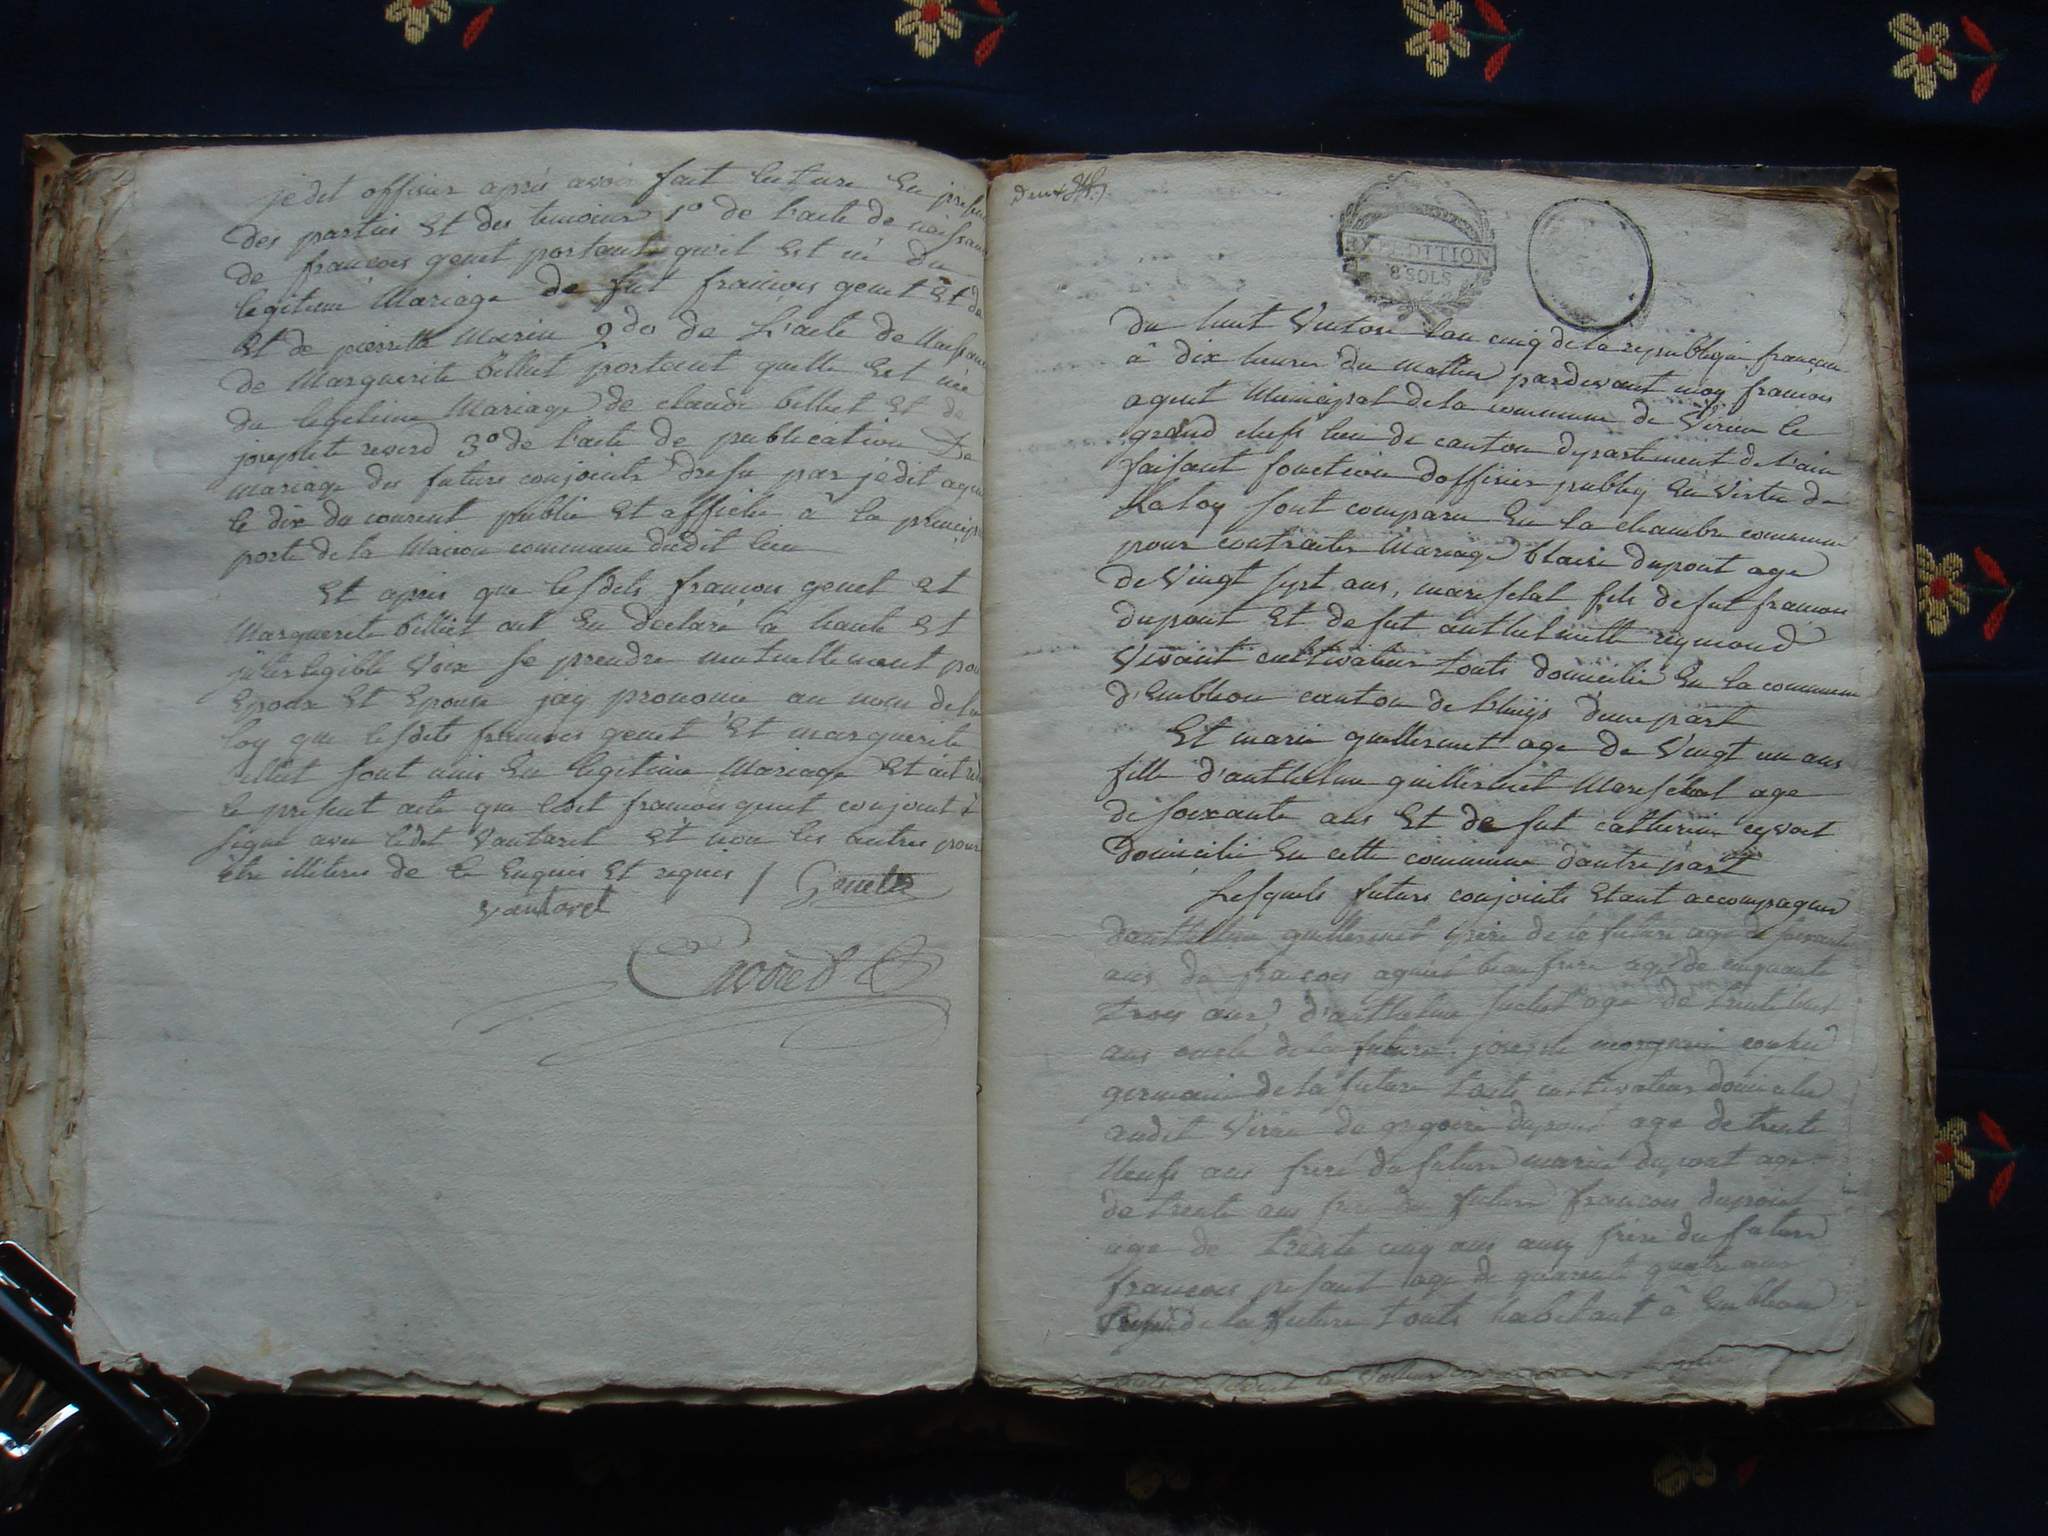 jedit officier après avoir fait lecture en presen
des parties et des temoins 1º de l'acte de naissan
de francois genet portant quil est né du
legitime Mariage de fut francois genet et de
et de pierrette Marin 2do de L'acte de Naissan
de Marguerite billiet portant quelle est née
du legitime Mariage de claude billiet et de
josephte reverd 3º de l'acte de publication De
Mariage des futurs conjoints dressé par jedit agen
le dix du courent publié et affiché à la princip
porte de la Maison commune dudit lieu
Et après que lesdits francois genet et
Marguerite billiet ont eu declaré à haute et
intelegible Voix se prendre mutuellement pour
Epoux et Epouse jay prononcé au nom de la
loy que lesdits francois genet et marguerite
billiet sont unis en legitime Mariage et ait
le present acte que ledit francois genet conjoint à
signé avec ledit vantaret et non les autres pour
être illiteres de ce enquis et requis / Genet
vantaret
EXPEDITION
8 SOLS
du huit Ventose lan cinq de la republique francaise
à dix heures du mattin pardevant moy francois
agent Municipal de la commune de Virieu le
grand chefs lieu de canton departement de l'ain
faisant fonction dofficier publiq en vertu de
La loy sont comparu en la chambre commune
pour contracter Mariage blaise dupont age
de Vingt sept ans, mareschal fils de fut francois
dupont et de fut anthelmette reymond
Vivant cultivateur touts domicilié en la commune
d'Embleon canton de d'une part
Et marie guillermet age de Vingt un ans
fille d'anthelme guillermet Mareschal age
de soixante ans et de fut catherine
Domicilié en cette commune d'autre part
Lesquels futurs conjoints etant accompagnés
d'anthelme guillermet père de la future age de soixante
ans de francois beau frere agé de cinquante
trois ans d'anthelme age de trente huit
ans oncle de la future joseph
germain de la future touts cultivateur domicilié
audit Virieu de gregoire dupont age de trente
Neufs ans frere du futur marie dupont age
de trente ans frere du futur francois dupont
age de trente cinq ans aussy frere du futur
francois age de quarente quatre ans
de la future touts habitant à Embleon